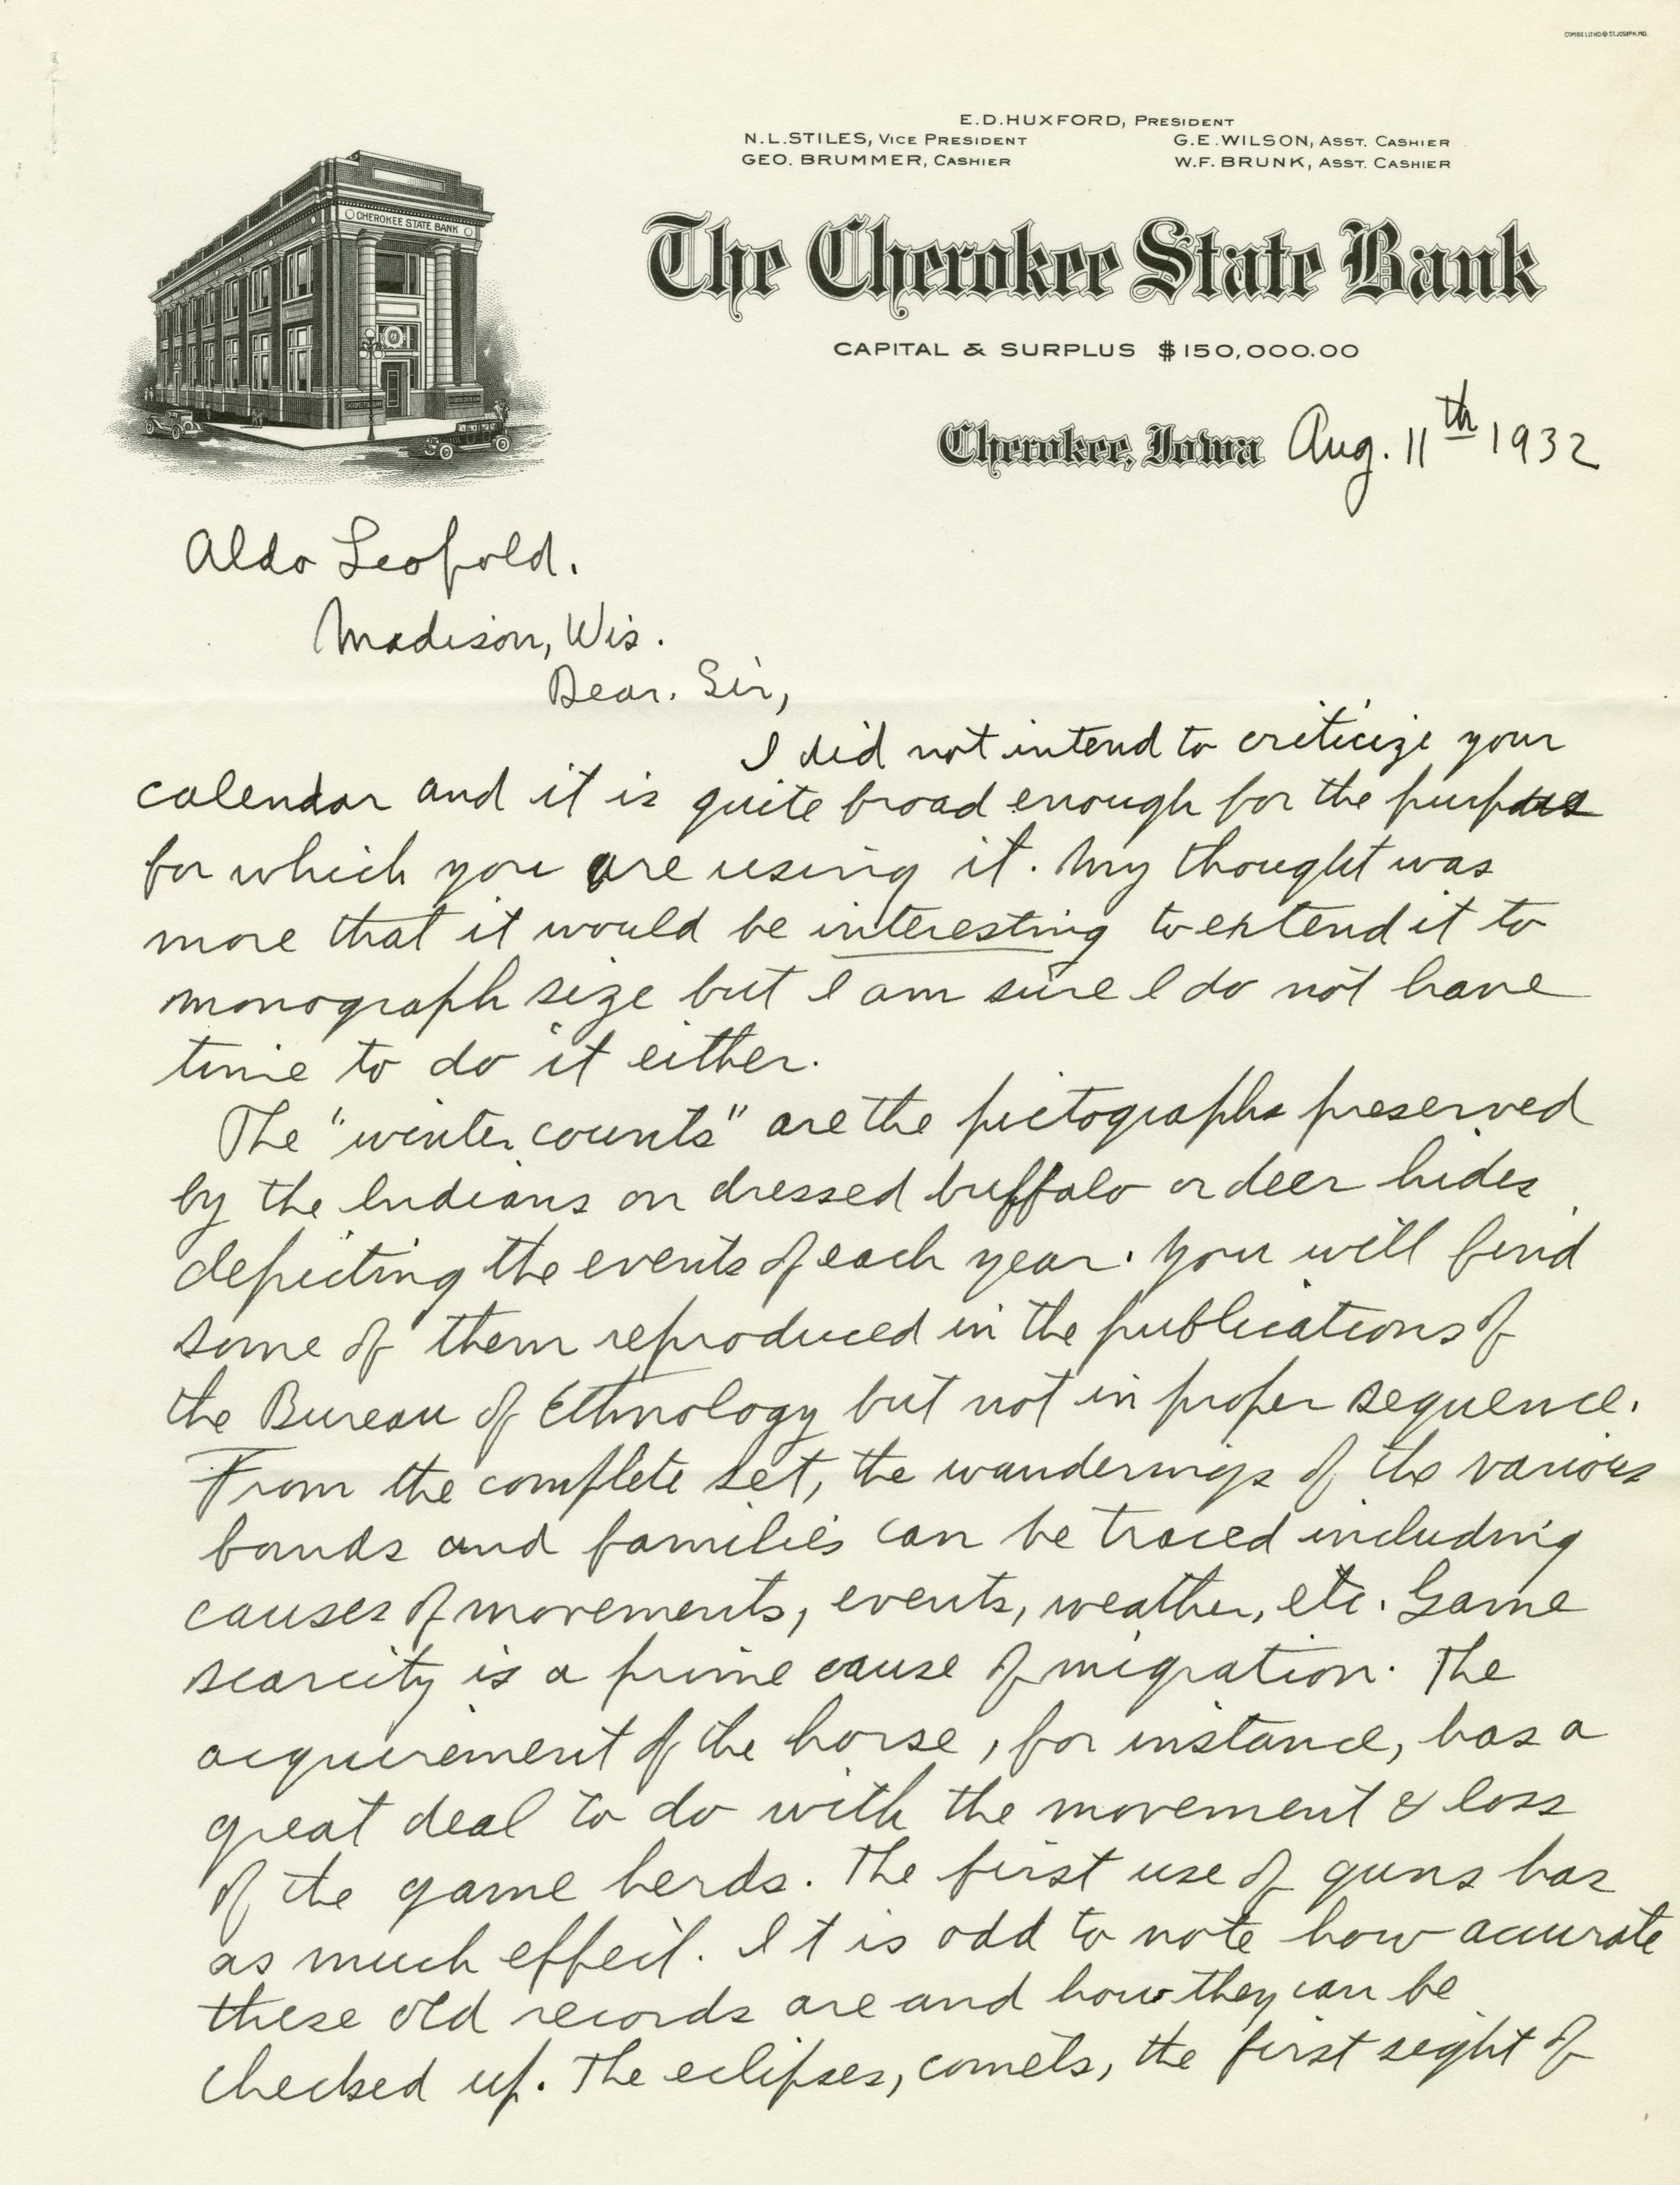 COMBE LITHO © ST. JOSEPH, MO.
E.D. HUXFORD, PRESIDENT
N.L. STILES, VICE PRESIDENT G.E. WILSON, ASST. CASHIER
GEO. BRUMMER, CASHIER W.F. BRUNK, ASST. CASHIER
CHEROKEE STATE BANK
The Cherokee State Bank
CAPITAL & SURPLUS $150,000.00
Cherokee, Iowa Aug. 11th 1932
Aldo Leopold.
Madison, Wis.
Dear. Sir,
I did not intend to criticize your
calendar and it is quite broad enough for the purpose
for which you are using it. My thought was
more that it would be interesting to extend it to
monograph size but I am sure I do not have
time to do it either.
The "winter counts" are the pictographs preserved
by the Indians on dressed buffalo or deer hides
depicting the events of each year. You will find
some of them reproduced in the publications of
the Bureau of Ethnology but not in proper sequence.
From the complete set, the wanderings of the various
bands and families can be traced including
causes of movements, events, weather, etc. Game
scarcity is a prime cause of migration. The
acquirement of the horse, for instance, has a
great deal to do with the movement & loss
of the game herds. The first use of guns has
as much effect. It is odd to note how accurate
these old records are and how they can be
checked up. The eclipses, comets, the first sight of